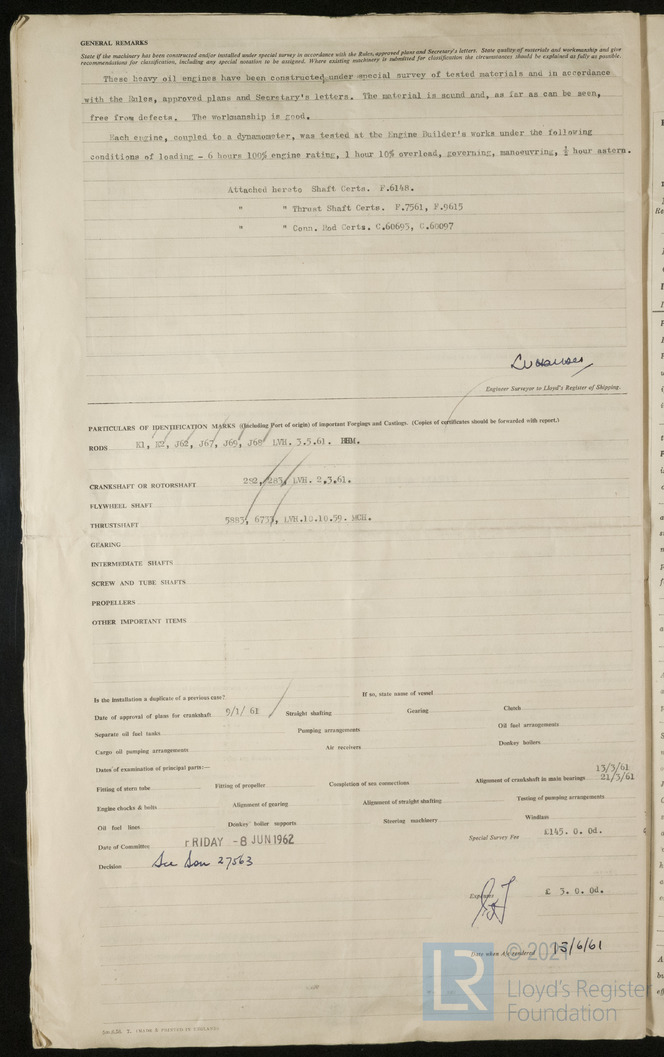 GENERAL REMARKS
State if the machinery has been constructed and/or installed under special survey in accordance with the Rules, approved plans and Secretary's letters. State quality of materials and workmanship and give
recommendations for classification, including any special notation to be assigned. Where existing machinery is submitted for classification the circumstances should be explained as fully as possible.
These heavy oil engines have been constructed under special survey of tested materials and in accordance
with the Rules, approved plans and Secretary's letters. The material is sound and, as far as can be seen,
free from defects. The workmanship is good.
Each engine, coupled to a dynamometer, was tested at the Engine Builder's works under the following
conditions of loading - 6 hours 100% engine rating, 1 hour 10% overload, governing, manoeuvring, ½ hour astern.
Attached hereto Shaft Certs. F.6148.
" " Thrust Shaft Certs. F.7561, F.9615
" " Conn. Rod Certs. C.60693, C.60097
Engineer Surveyor to Lloyd's Register of Shipping.
PARTICULARS OF IDENTIFICATION MARKS (Including Port of origin) of important Forgings and Castings. (Copies of certificates should be forwarded with report.)
RODS K1, K2, J62, J67, J69, J68 LVH. 3.5.61. HBM.
CRANKSHAFT OR ROTORSHAFT 292, 283, LVH. 2.3.61.
FLYWHEEL SHAFT
THRUSTSHAFT 5883, 6737, LVH.10.10.59. MCH.
GEARING
INTERMEDIATE SHAFTS
SCREW AND TUBE SHAFTS
PROPELLERS
OTHER IMPORTANT ITEMS
Is the installation a duplicate of a previous case? If so, state name of vessel
Date of approval of plans for crankshaft 9/1/61 Straight shafting Gearing Clutch
Separate oil fuel tanks Pumping arrangements Oil fuel arrangements
Cargo oil pumping arrangements Air receivers Donkey boilers
Dates of examination of principal parts:—
13/3/61
Fitting of stern tube Fitting of propeller Completion of sea connections Alignment of crankshaft in main bearings 21/3/61
Engine chocks & bolts Alignment of gearing Alignment of straight shafting Testing of pumping arrangements
Oil fuel lines Donkey boiler supports Steering machinery Windlass
Date of Committee FRIDAY -8 JUN 1962 Special Survey Fee £145. 0. 0d.
Decision See Son 27563
Expenses £ 3. 0. 0d.
Date when A/c rendered 13/6/61
LR © 2021
Lloyd's Register
Foundation
(MADE & PRINTED IN ENGLAND)